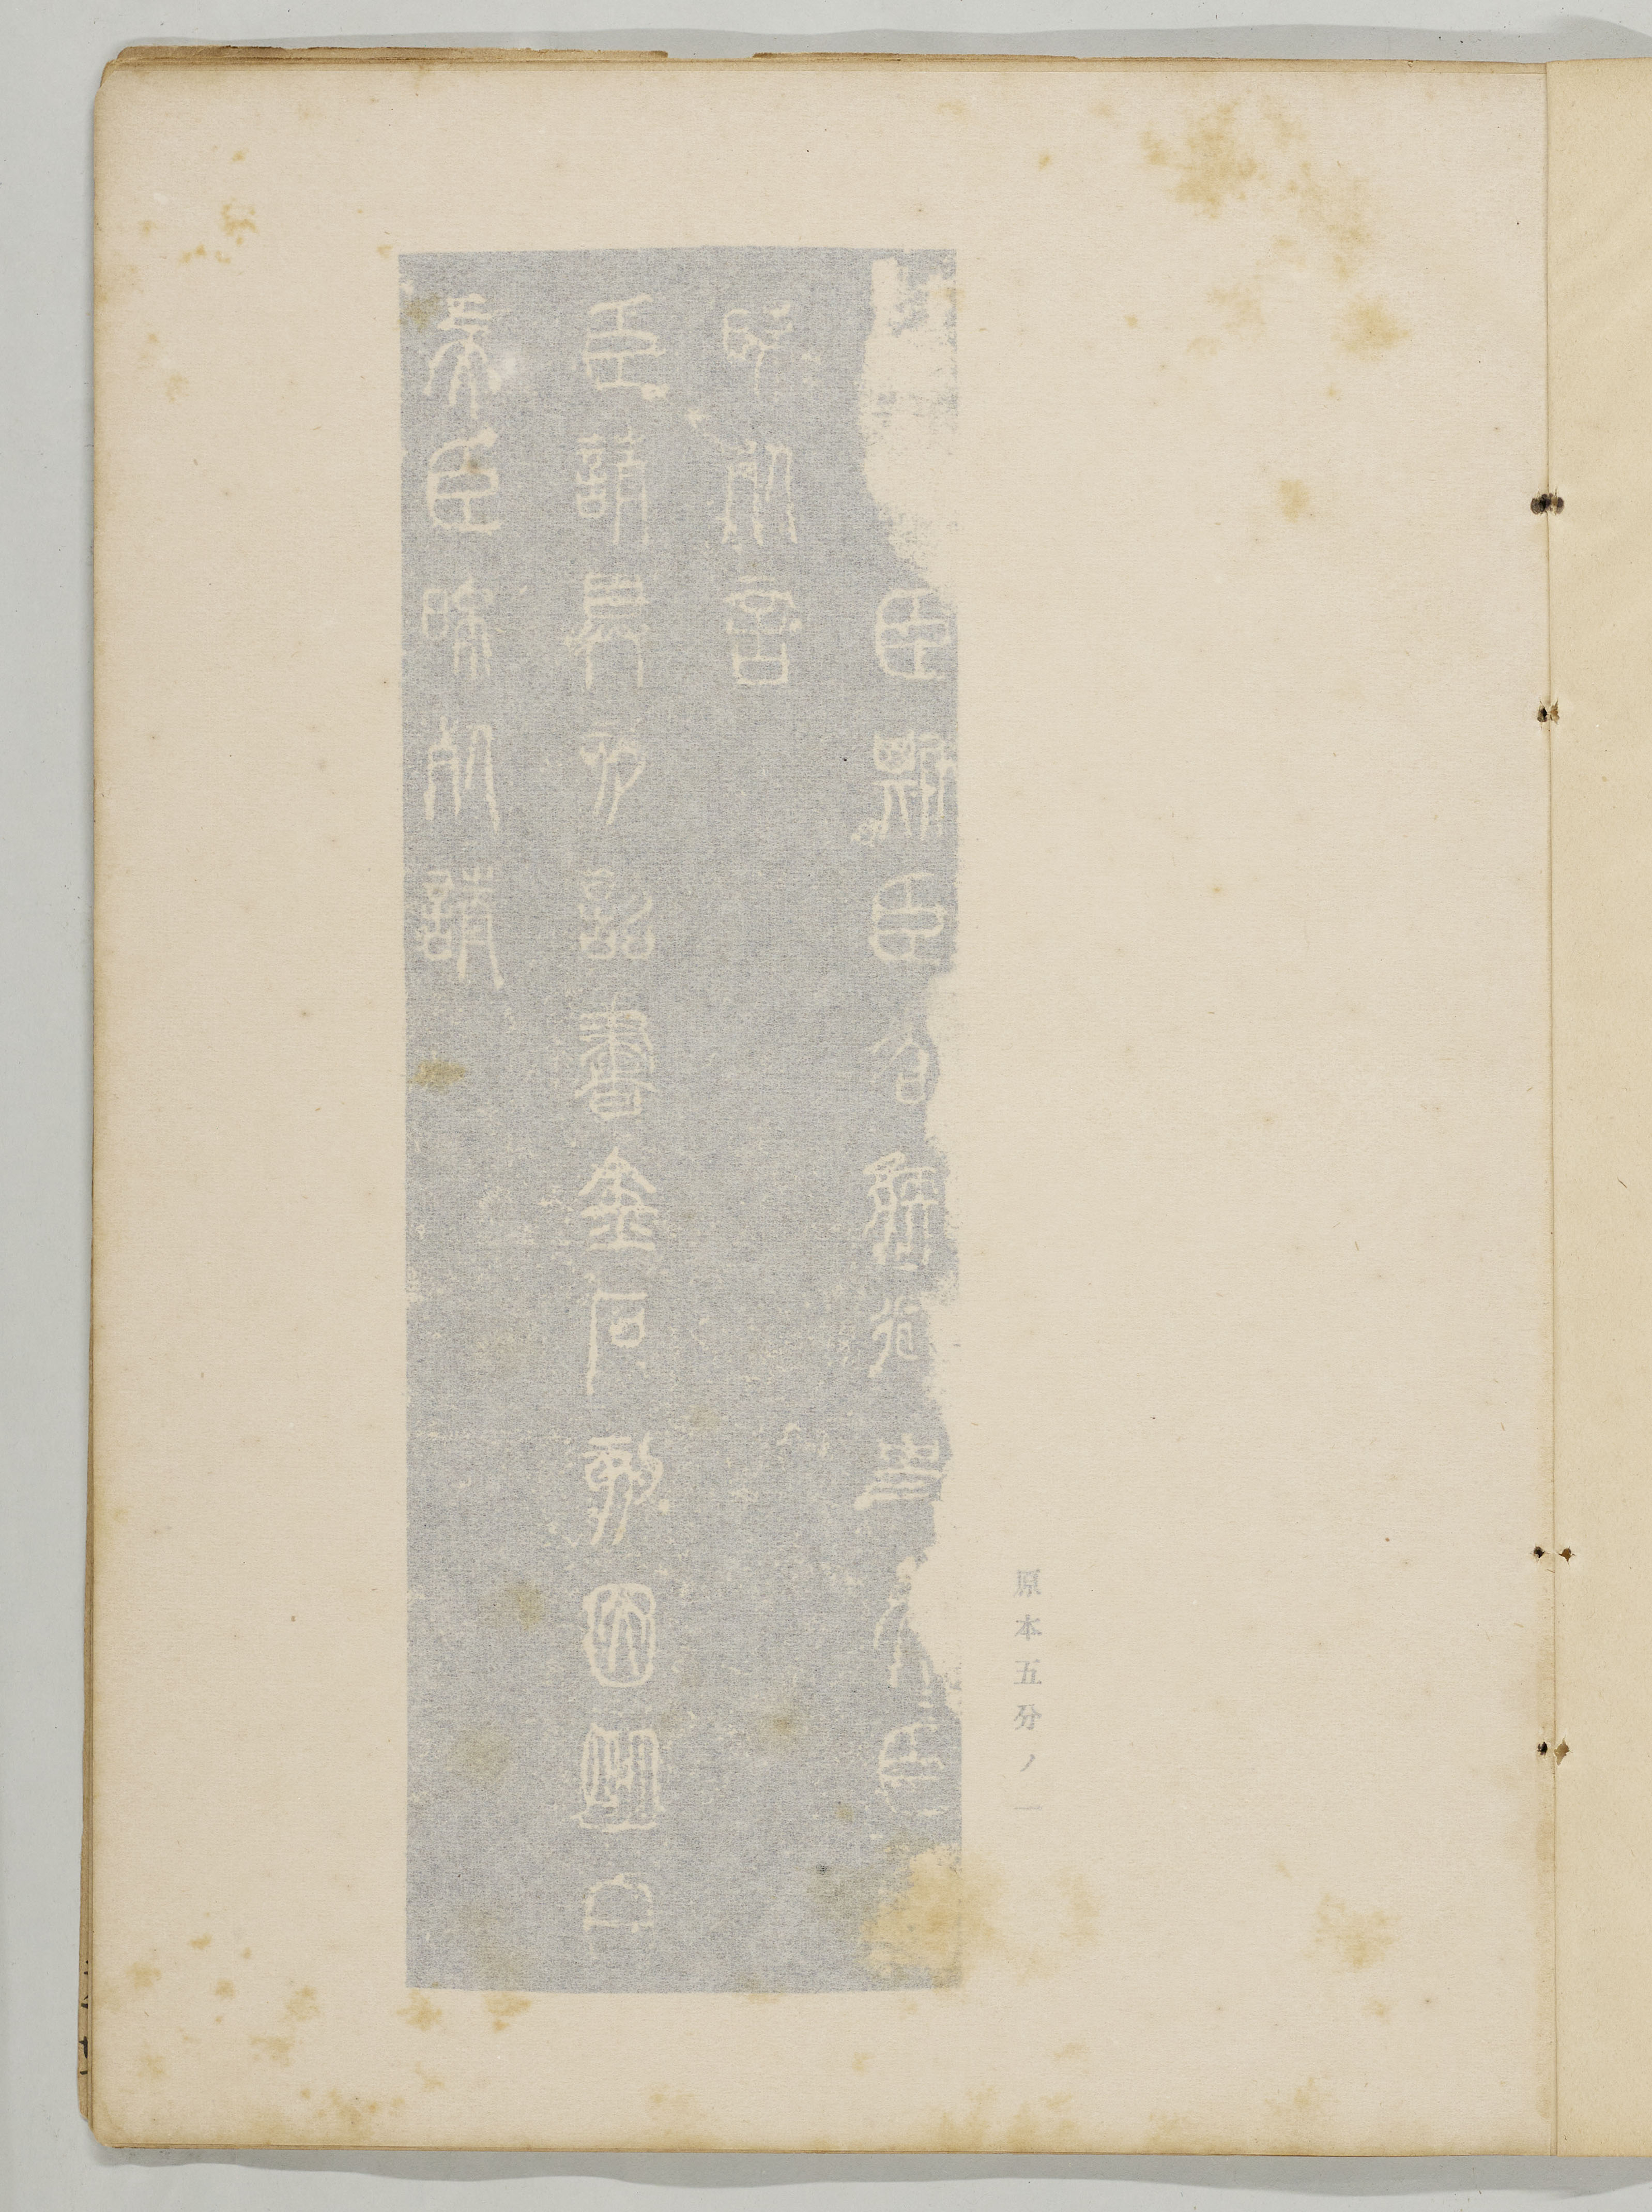 原本五分ノ一
臣斯臣去疾御史夫臣
昧死言
臣請具刻詔書金石刻因明白
矣臣昧死請